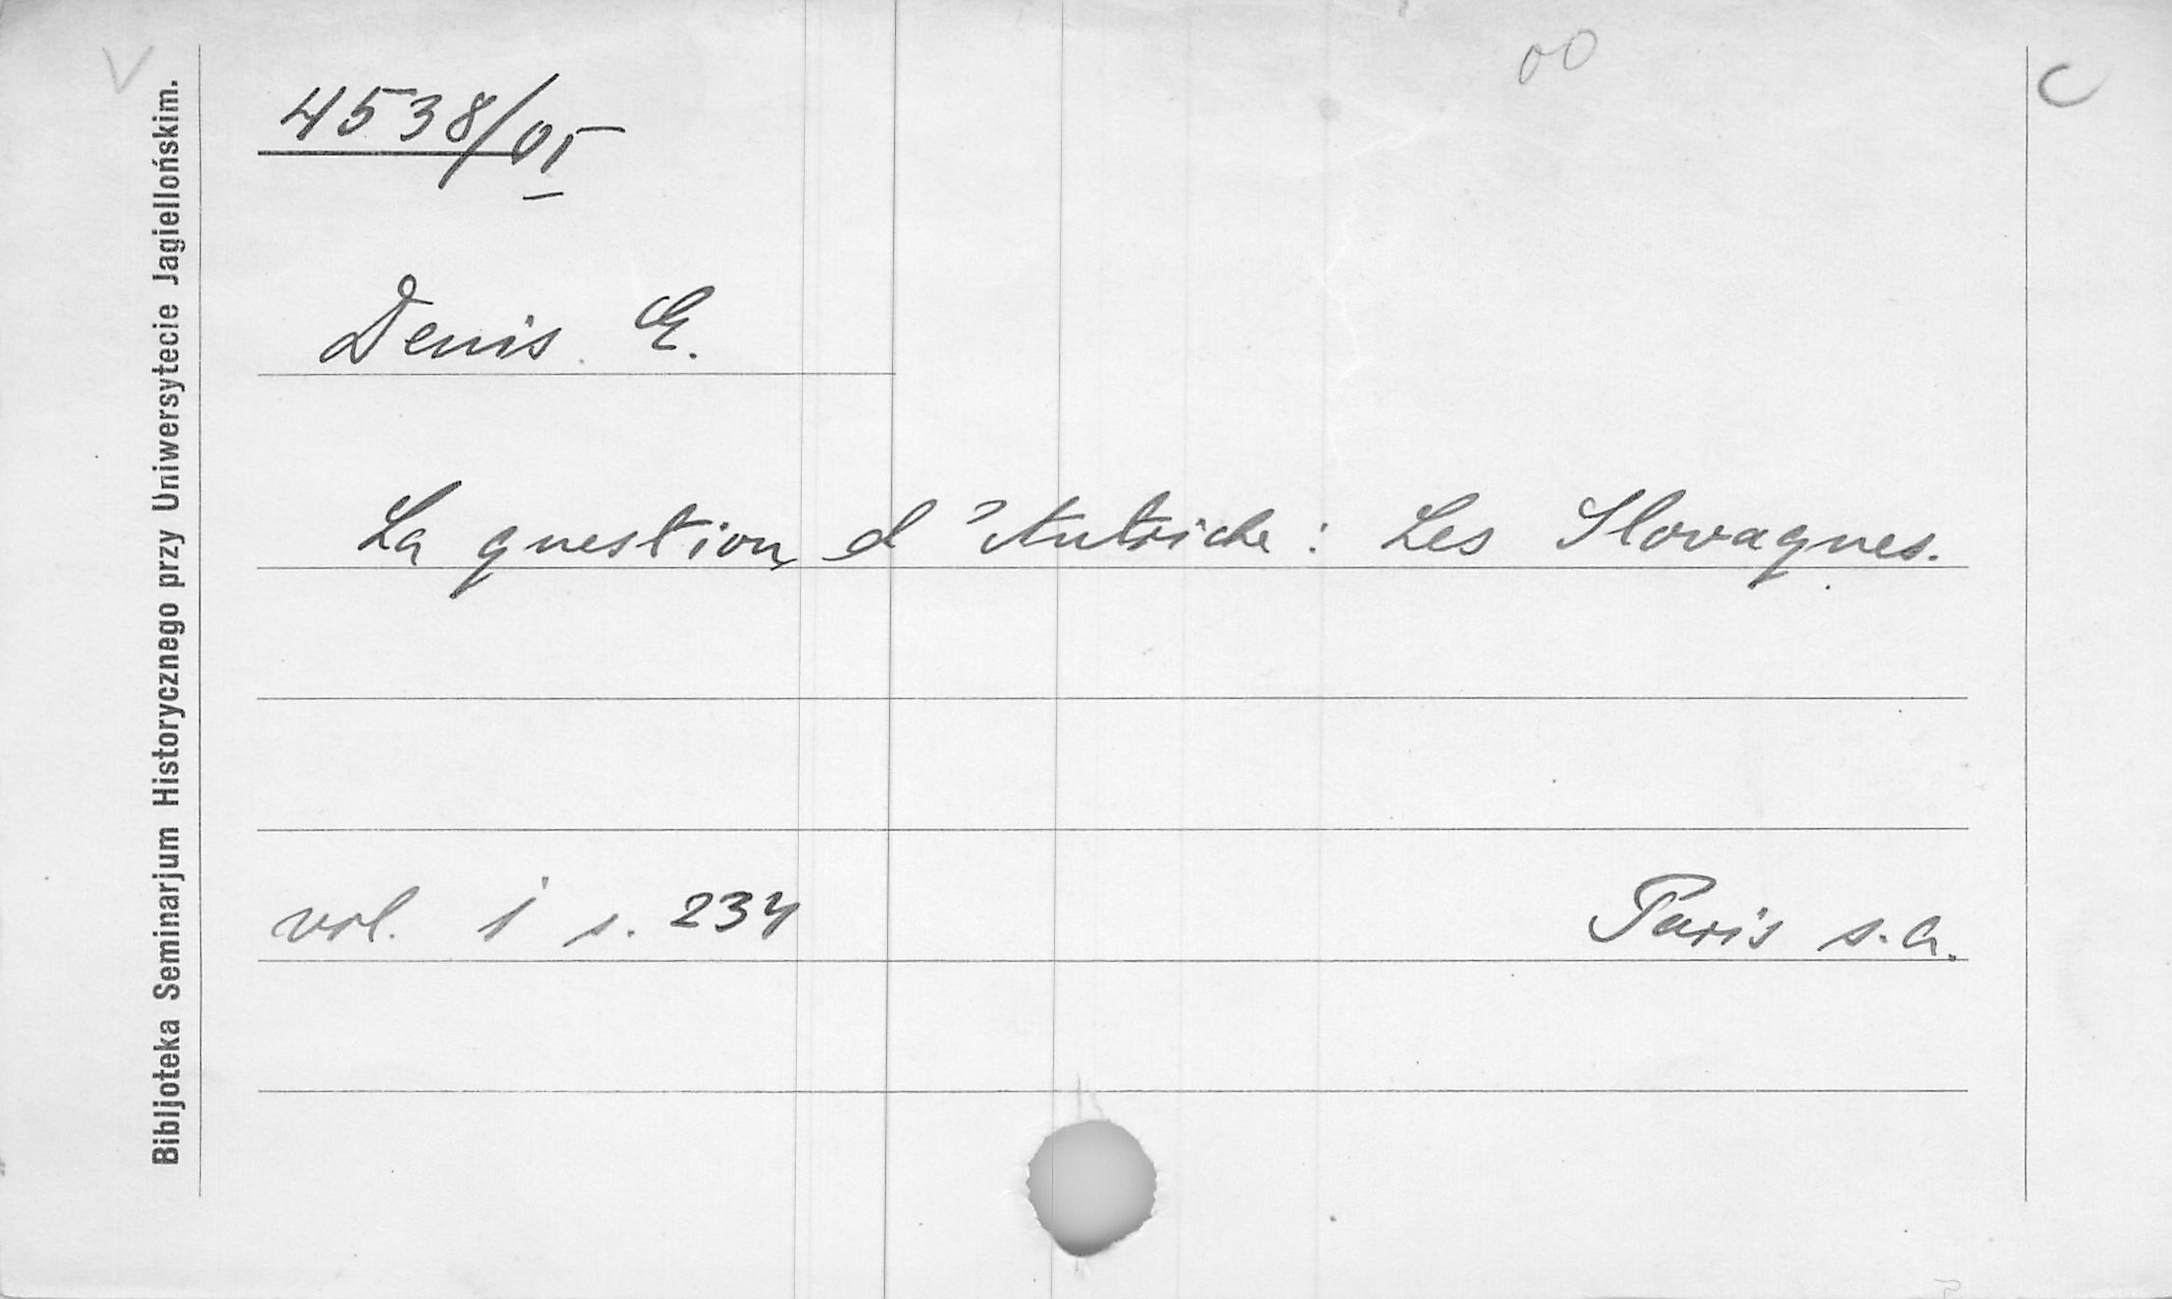 V
00
C
4538/05
Denis E.
La question d'Autriche: Les Slovaques.
vol. 1 s. 234 Paris s.a.
Bibljoteka Seminarjum Historycznego przy Uniwersytecie Jagiellońskim.